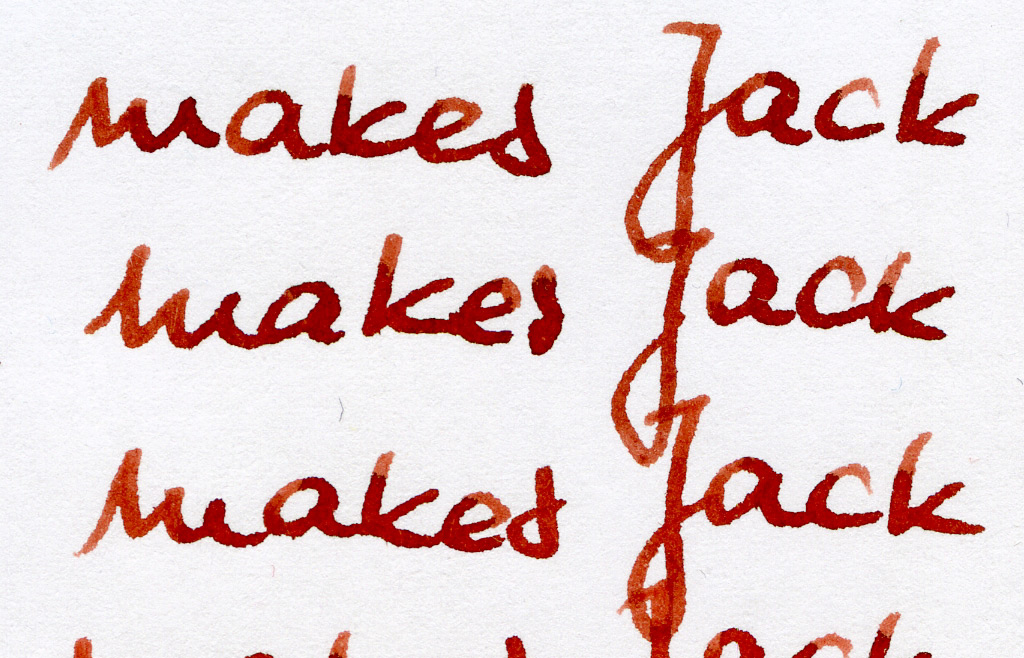 makes Jack
makes Jack
makes Jack